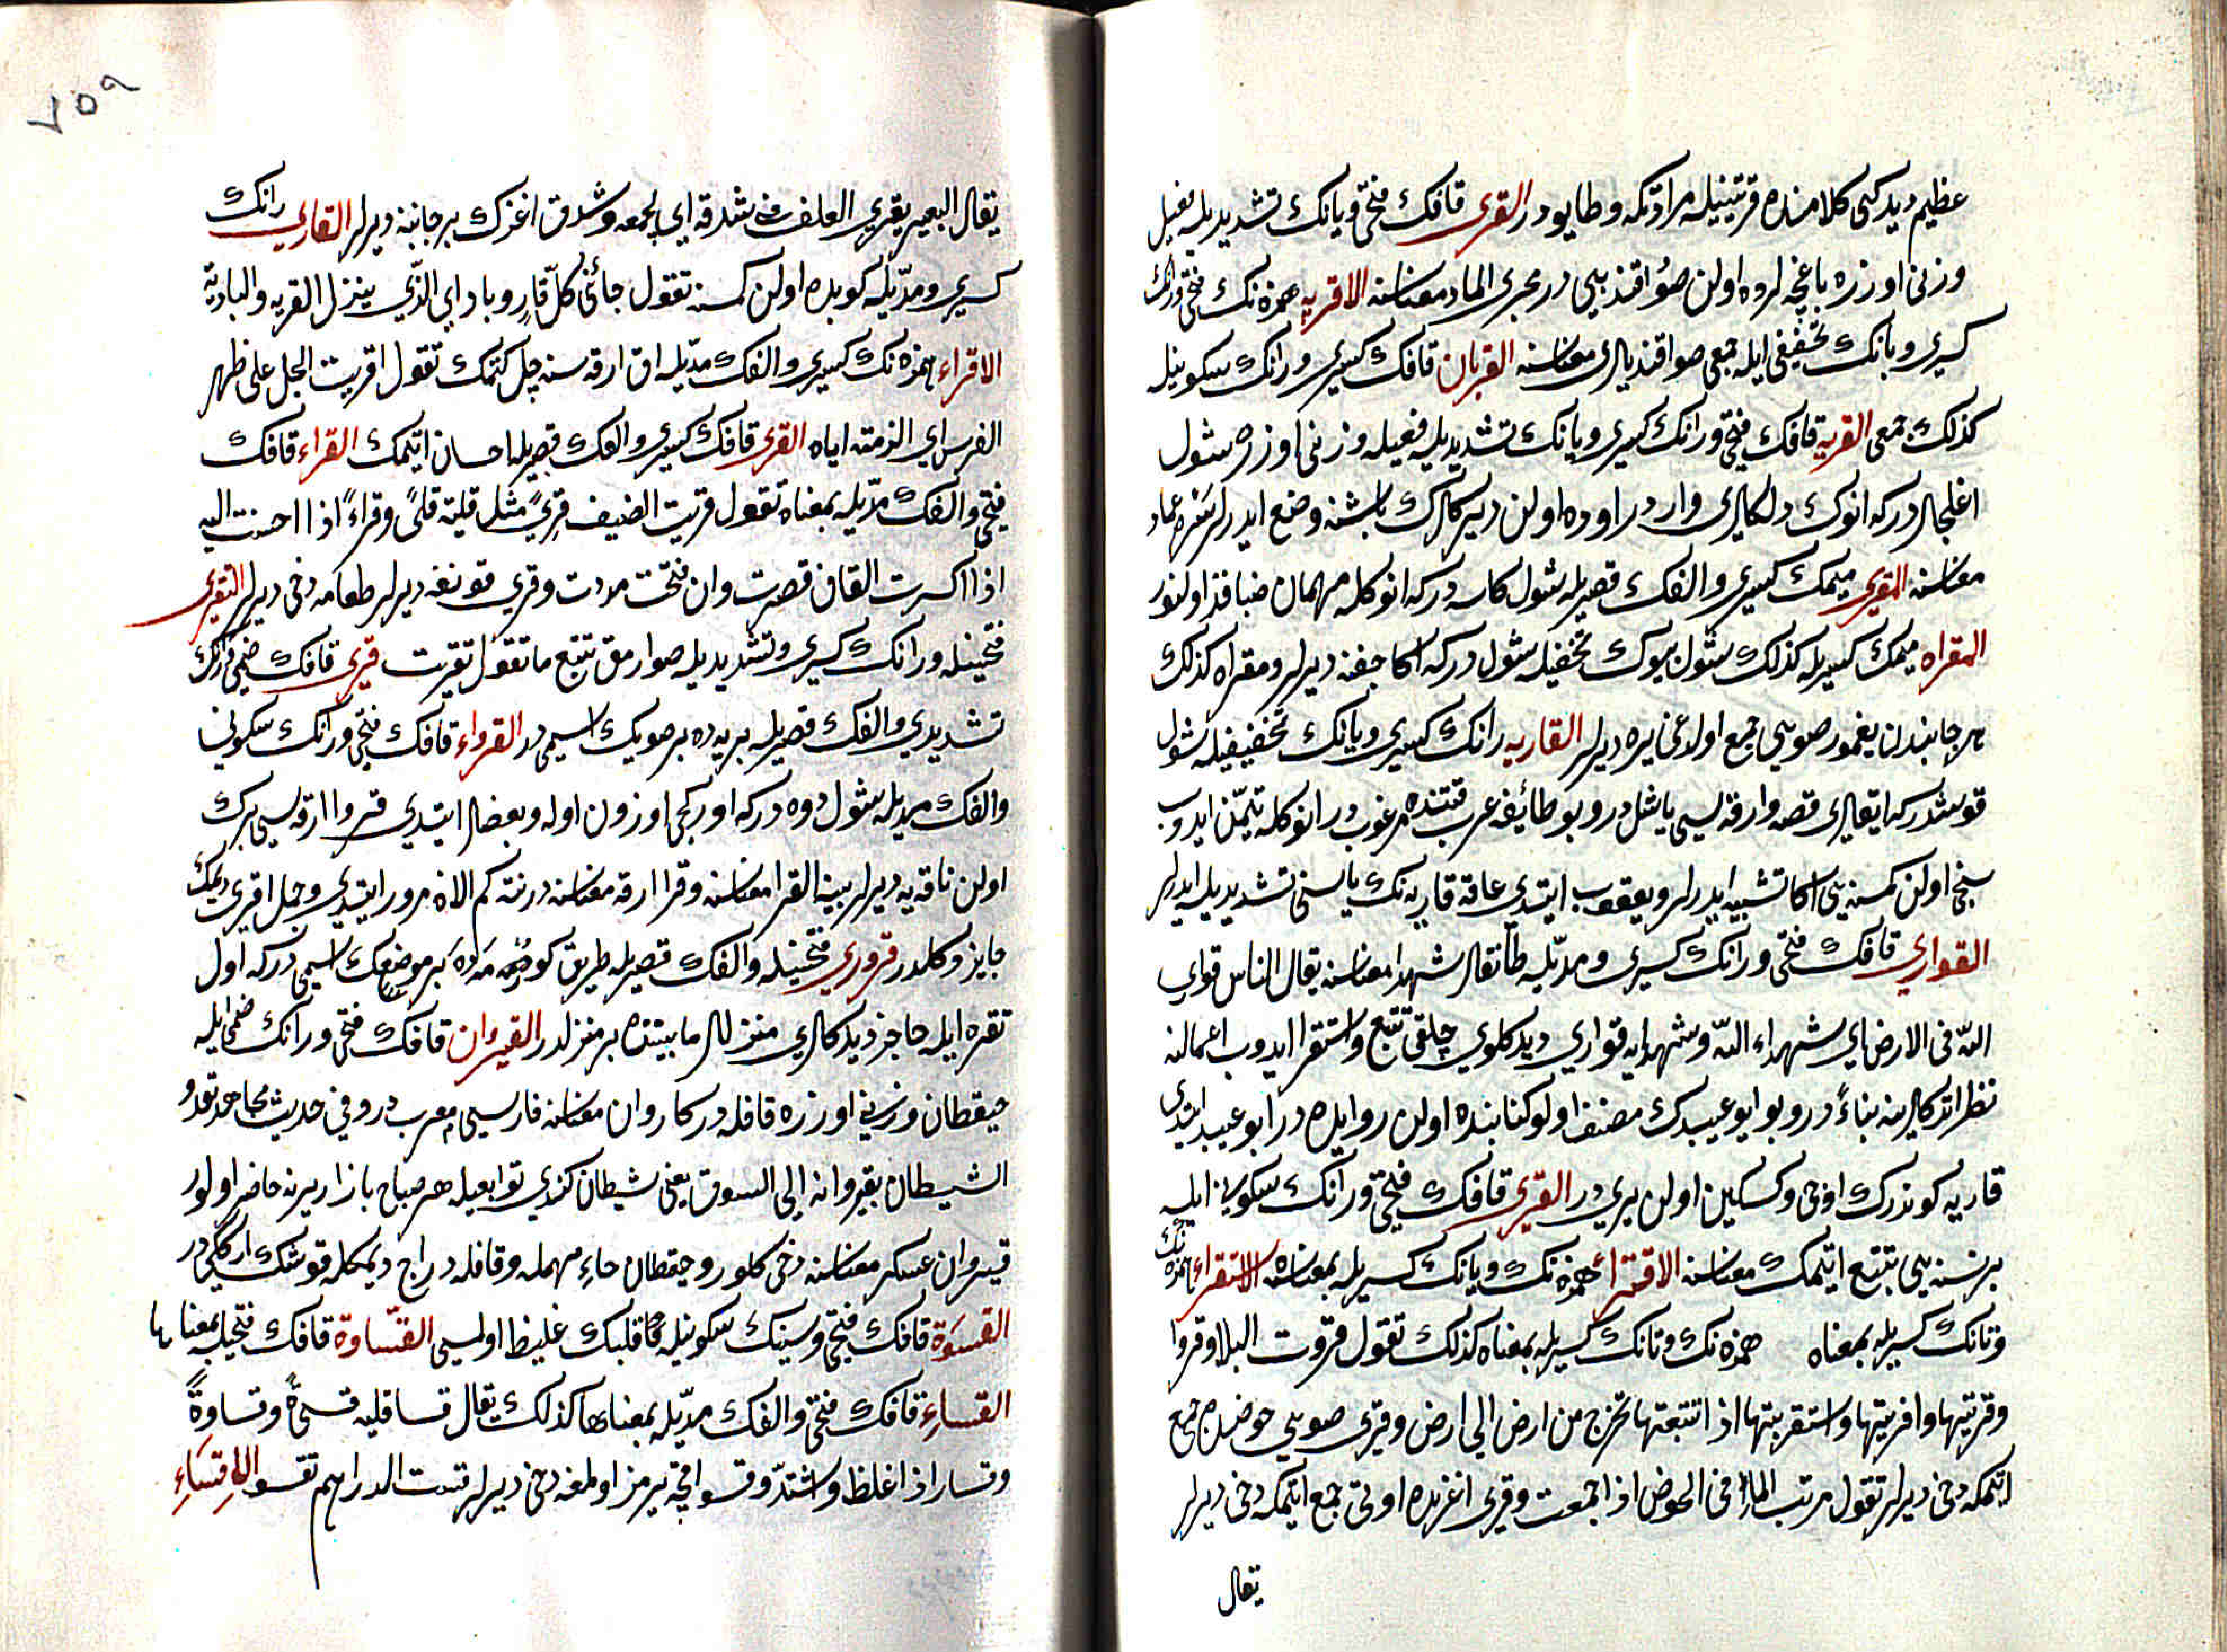 عظیم دیدکی کلامنده قرتینیله مرادی مکه وطایودر القری قافك فتحی ویانك تشدیدیله فعیل
وزنی اوزره باغچه لروه اولن صو اقندیسی در مجری الماء معناسنه الاقریه همزه نك فتحی ورانك
کسری ویانك تخفیفی ایله جمعی صو اقندیلری معناسنه القریان قافك کسری ورانك سکونیله
کذلك جمعی القریه قافك فتحی ورانك کسری ویانك تشدیدیله فعیله وزنی اوزره شول
اغاجلر درکه انوك دلکلری واردر اوده اولن دیرکلرك باشنه وضع ایدرلر
معناسنه المقری میمك کسری والفك قصریله شول کاسه درکه انوکله مهمان ضیافت اولنور
المقراه میمك کسریله کذلك شول بیوك تخفیله شول درکه اکا جفنه دیرلر ومقراه کذلك
هر جانبدن یغمور صویی جمع اولدغی یره دیرلر القاریه رانك کسری ویانك تخفیفیله شول
قوشدرکه ایقلری قصه وارقه سی یاشل در وبو طائفه عرب قتنده مرغوب در انوکله تیمن ایدوب
سخی اولن کمسنه یی اکا تشبیه ایدرلر ویعقوب ایتدی عامه قاریه نك یاسنی تشدیدیله ایدرلر
القواری قافك فتحی ورانك کسری ومدیله طانقلر شهدا معناسنه یقال الناس قواری
الله فی الارض ای شهداء الله وشهدایه قواری دیدکلری خلقی تتبع واستقرا ایدوب اعمالنه
نظر اتدکلرینه بناء در وبو ابو عبیدك مصنف اولو کتابنده اولن روایتده در ابو عبید ایتدی
قاریه کوندرك اوحی وکسکین اولن یری در القری قافك فتحی ورانك سکونی ایله
بر نسنه یی تتبع ایتمك معناسنه الاقتراء همزه نك ویانك کسریله بمعناه الاستقراء همزه نك
وتانك کسریله بمعناه همزه نك وتانك کسریله بمعناه کذلك تقول قروت البلاد قروا
وقریتها واقریتها واستقریتها اذا تتبعتها تخرج من ارض الی ارض وقری صویی حوضده جمع
ایتمکه دخی دیرلر تقول قریت الماء فی الحوض اذا جمعت وقری اغزیده اوتی جمع ایتمکه دخی دیرلر
یقال
٧٥٩
یقال البعیر یقری العلف فی شدقه ای یجمعه وشدق اغزك بر جانبنه دیرلر القاری رانك
کسری ومدیله کویده اولن کمسنه تقول جائنی کل قار وباد ای الذی ینزل القریه والبادیة
الاقراء همزه نك کسری والفك مدیله ات ارقه سنه چل کتمك تقول اقریت الجل علی ظهر
الفرس ای الزمته ایاه القری قافك کسری والفك قصریله احسان ایتمك القراء قافك
فتحی والفك مدیله بمعناه تقول قریت الضیف قری مثل قلیته قلی وقراء اذا احسنت الیه
اذا کسرت القاف قصرت وان فتحت مددت وقری قونغه دیرلر طعامه دخی دیرلر التقری
فتحتینله ورانك کسری وتشدیدیله صو ارمق تتبع ما تقول تقریت قری قافك ضمی ورانك
تشدیدی والفك قصریله بریه ده بر صویك اسمی در القرواء قافك فتحی ورانك سکونی
والفك مدیله شول دوه درکه اورکجی اوزون اوله وبعضلر ایتدی قروا ارقه سی برك
اولن ناقه یه دیرلر بینة القرا معناسنه وقرا ارقه معناسنه درنته کم الان مرور ایتدی وجمل اقری دیمك
جایز دکلدر قروری فتحتینله والفك قصریله طریق کوفه ده بر موضعك اسمی درکه اول
نقره ایله حاجر دیدکلری منزللر مابیننده بر منزلدر القیروان قافك فتحی ورانك ضمی ایله
حیقطان وزنی اوزره قافله در کاروان معناسنه فارسی معرب در وفی حدیث مجاهد تغدو
الشیطان بقیروانه الی السوق یعنی شیطان کندی توابعیله هر صباح بازار یرینه حاضر اولور
قیروان عسکر معناسنه دخی کلور وحیقطان حاء مهمله وقافله دراج دیمکله قوشك ارککی در
القسوة قافك فتحی وسینك سکونیله قلبك غلیظ اولسی القساوة قافك فتحیله بمعناها
القساء قافك فتحی والفك مدیله بمعناها کذلك یقال قسا قلبه قسوة وقساوة
وقسا اذا غلظ واشتد وقسو اقچه یرمز اولمغه دخی دیرلر قست الدراهم تقسو الاقساء